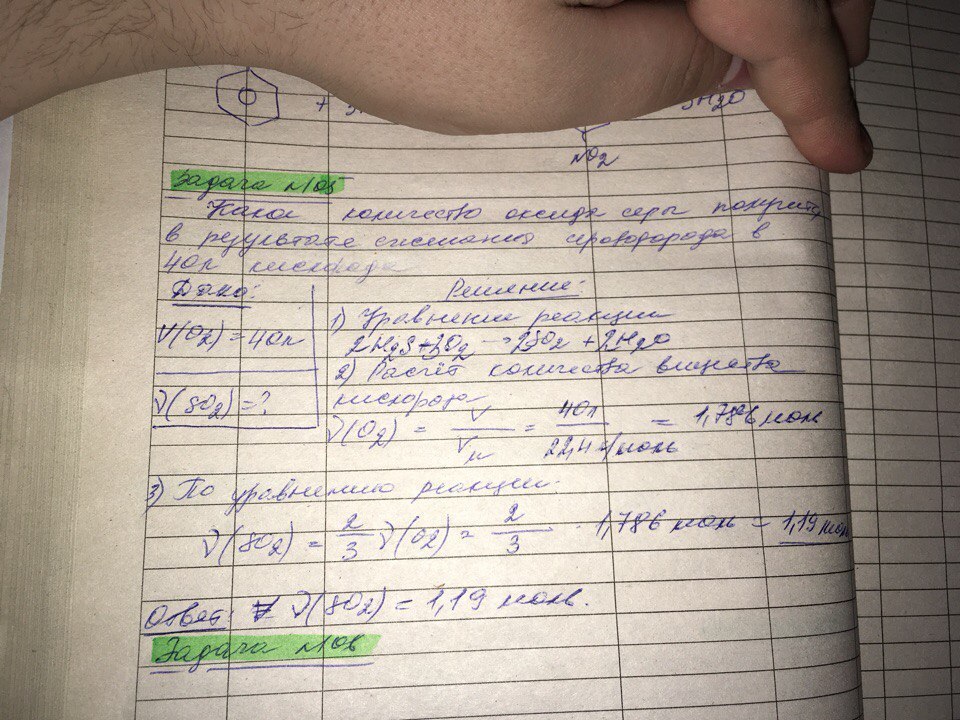 + 3H2O
NO2
Задача №105
Какое количество оксида серы получится
в результате сжигания сероводорода в
40л кислорода
Дано:
V(O2) = 40л
ν(SO2) = ?
Решение:
1) Уравнение реакции
2H2S + 3O2 = 2SO2 + 2H2O
2) Расчёт количества вещества
кислорода
ν(O2) = V/Vм = 40л/22,4 л/моль = 1,786 моль
3) По уравнению реакции:
ν(SO2) = 2/3 ν(O2) = 2/3 · 1,786 моль = 1,19 моль
Ответ: ν(SO2) = 1,19 моль.
Задача №106